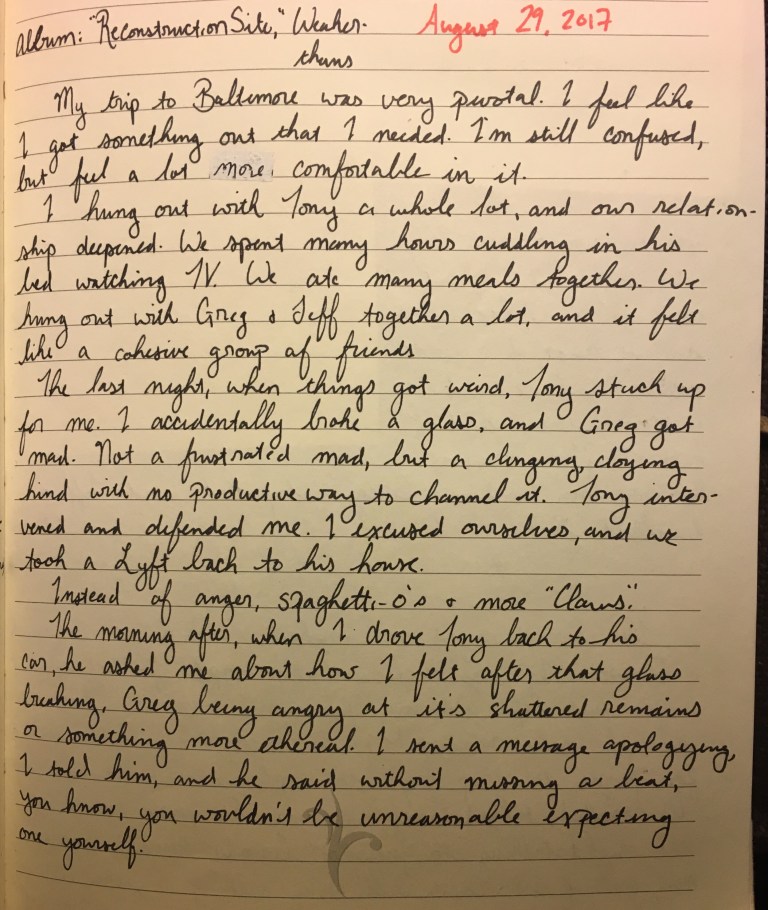 Album: "Reconstruction Site," Weaker-
thans
August 29, 2017
My trip to Baltimore was very pivotal. I feel like
I got something out that I needed. I'm still confused,
but feel a lot more comfortable in it.
I hung out with Tony a whole lot, and our relation-
ship deepened. We spent many hours cuddling in his
bed watching TV. We ate many meals together. We
hung out with Greg & Jeff together a lot, and it felt
like a cohesive group of friends
The last night, when things got weird, Tony stuck up
for me. I accidentally broke a glass, and Greg got
mad. Not a frustrated mad, but a clinging, cloying
kind with no productive way to channel it. Tony inter-
vened and defended me. I excused ourselves, and we
took a Lyft back to his house.
Instead of anger, spaghetti-o's & more "Claws".
The morning after, when I drove Tony back to his
car, he asked me about how I felt after that glass
breaking, Greg being angry at it's shattered remains
or something more ethereal. I sent a message apologizing,
I told him, and he said without missing a beat,
you know, you wouldn't be unreasonable expecting
one yourself.